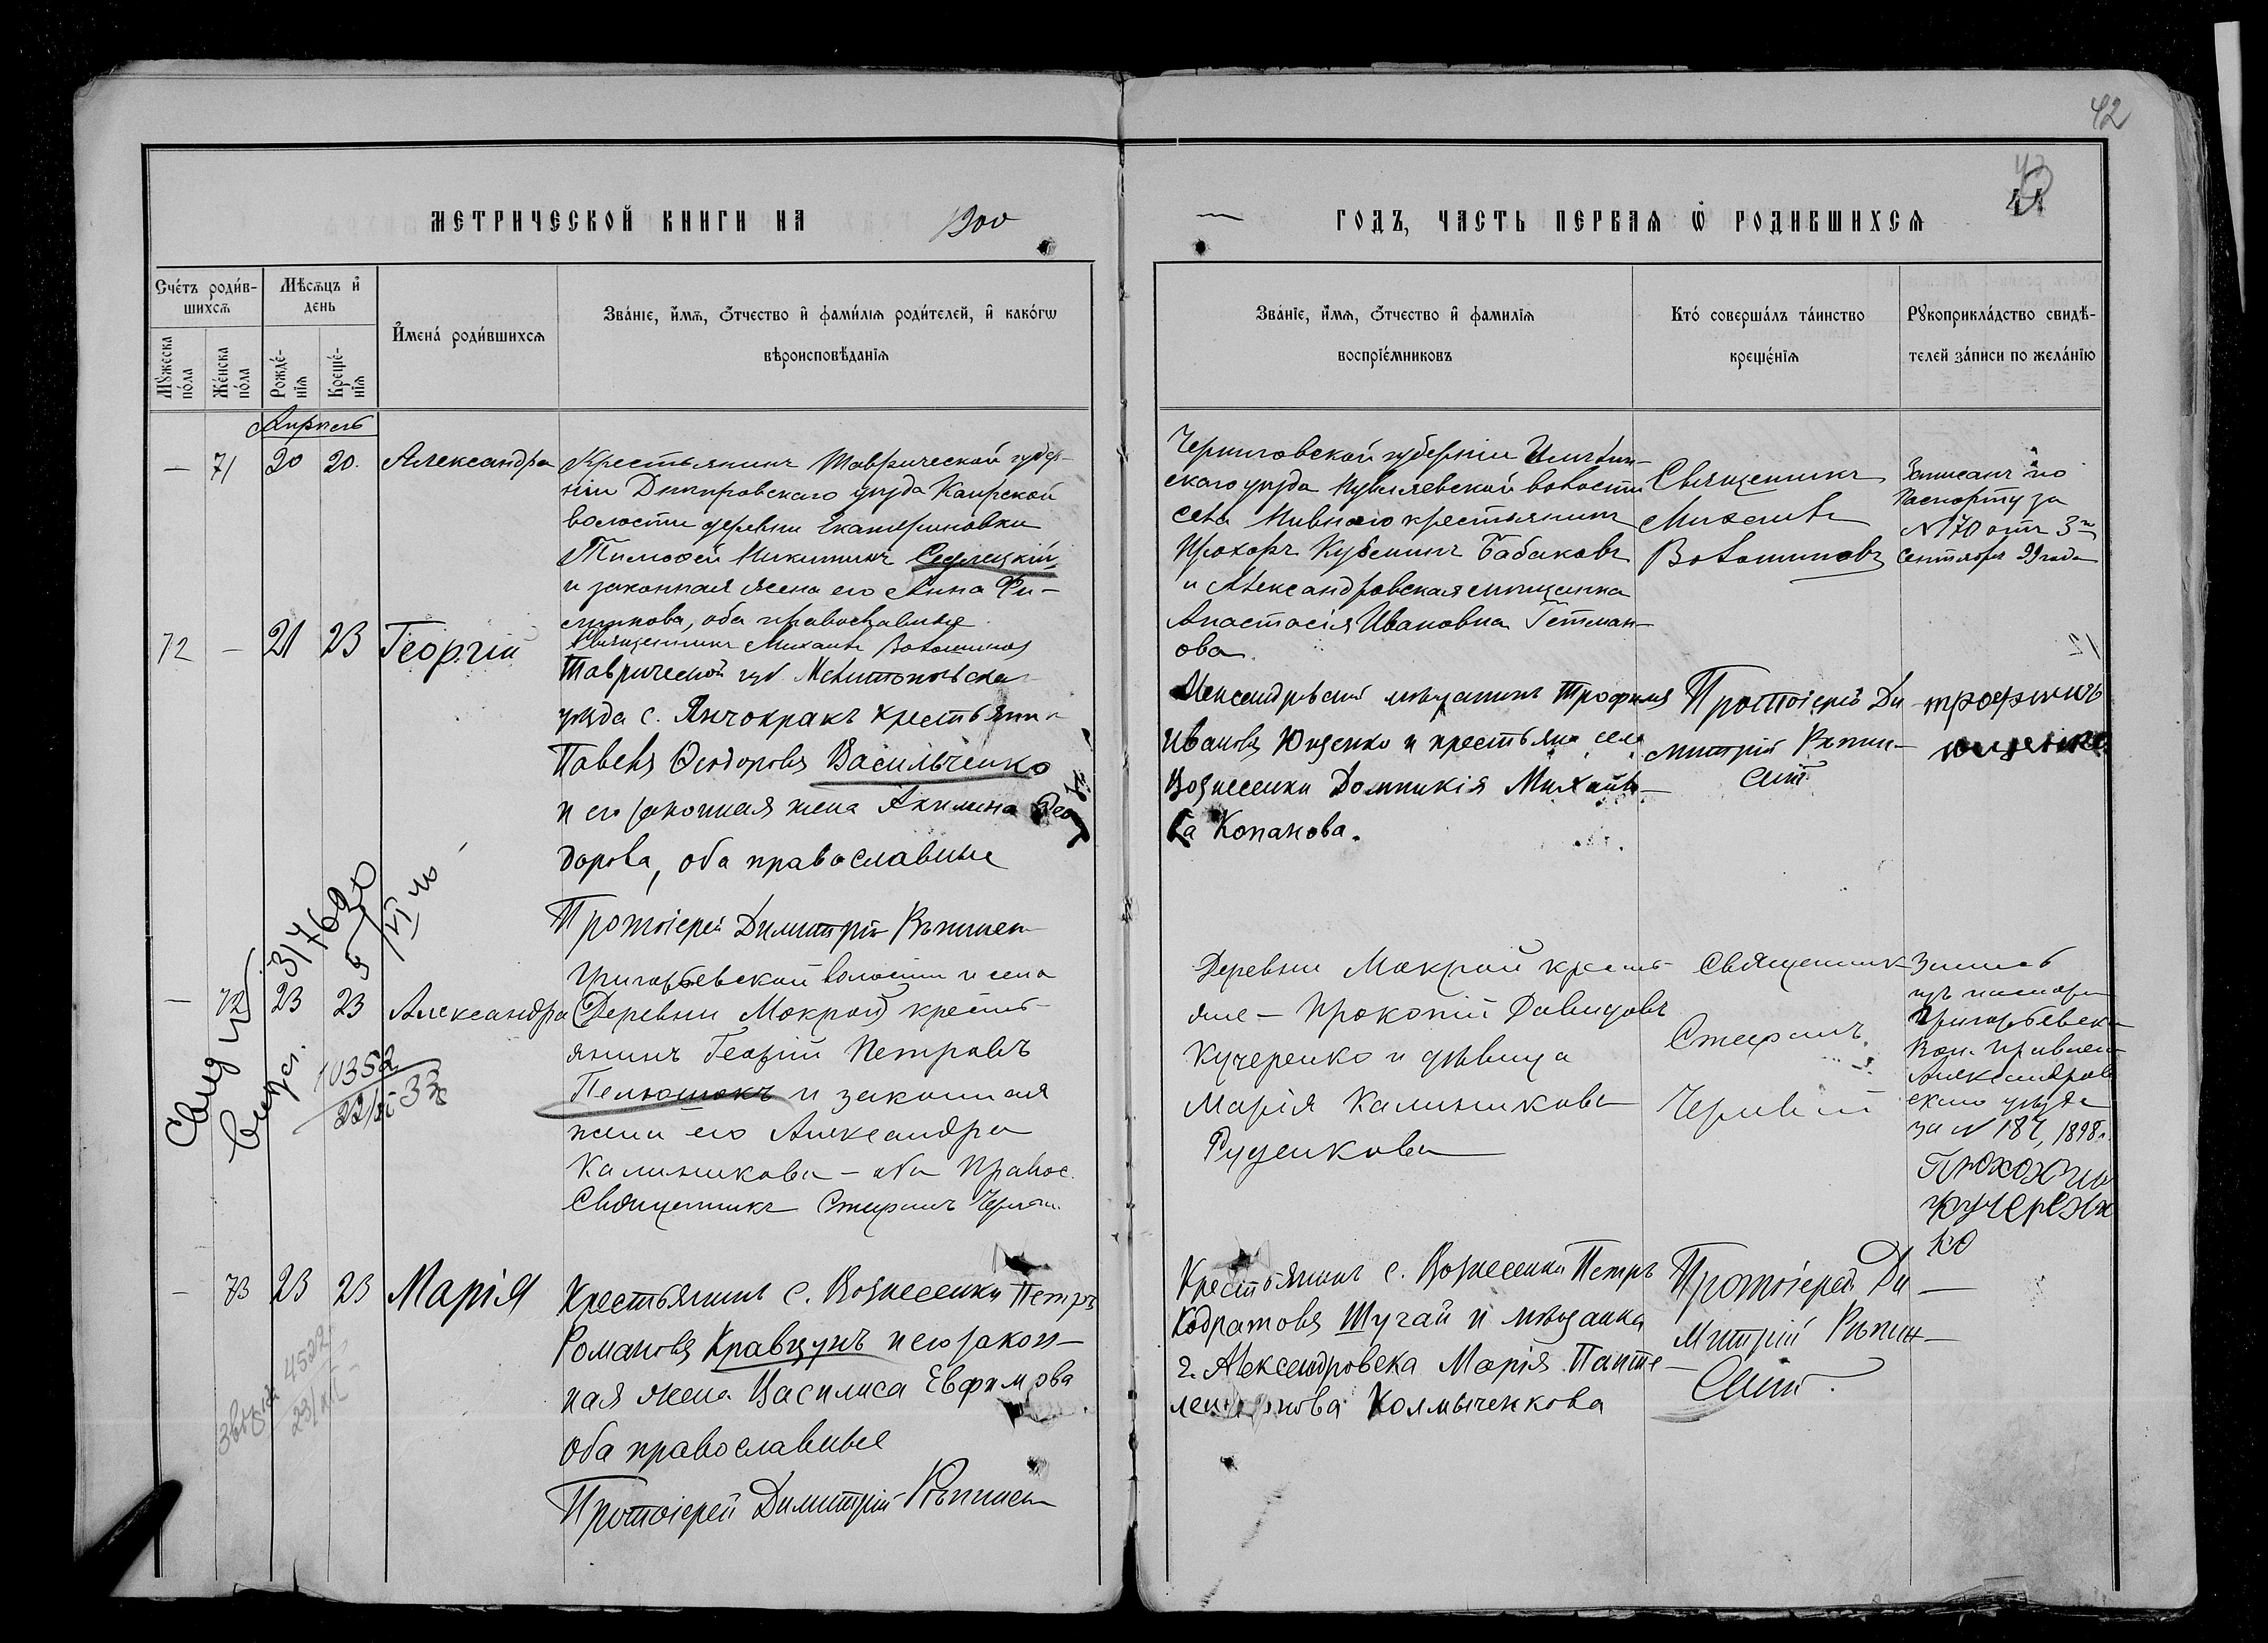 42
МЕТРИЧЕСКОЙ КНИГИ НА 1900
ГОДЪ, ЧАСТЬ ПЕРВАЯ Ѡ РОДИВШИХСЯ
Счéтъ роди́в-
шихсѧ
Мѣ́сѧцъ и҆
день
Мꙋ́жеска
по́ла
Же́нска
по́ла
Рожде́-
нїѧ
Креще́-
нїѧ
И҆мена̀ роди́вшихсѧ
Зва́нїе, и҆́мѧ, ѻ҆́тчество и҆ фами́лїѧ роди́телей, и҆ како́гѡ
вѣроисповѣ́данїѧ
Зва́нїе, и҆́мѧ, ѻ҆́тчество и҆ фами́лїѧ
воспрїе́мниковъ
Кто̀ соверша́лъ та́инство
креще́нїѧ
Рꙋкоприкла́дство свидѣ́-
телей за́писи по жела́нїю
Апрель
— 71 20 20. Александра
Крестьянинъ Таврической губер-
ніи Днѣпровскаго уѣзда Каирской
волости деревни Екатериновки
Тимофей Никитинъ Седлецкій
и законная жена его Анна Фи-
липпова, оба православные
Священникъ Михаилъ Волошиновъ
Черниговской губерніи
скаго уѣзда волости
села крестьянинъ
Прохоръ Кузьминъ Бабаковъ
и Александровская мѣщанка
Анастасія Ивановна Гетман-
ова.
Священникъ
Михаилъ
Волошиновъ
Записанъ по
паспорту за
№170 отъ 3го
Сентября 99 года
72 — 21 23 Георгій
Таврической губ. Мелитопольскаго
уѣзда с. Янчокракъ крестьянинъ
Павелъ Ѳеодоровъ Васильченко
и его законная жена Акилина Ѳео-
дорова, оба православные
Протоіерей Димитрій Рѣпинск
Александровскій мѣщанинъ Трофимъ
Ивановъ Ющенко и крестьянка села
Вознесенки Домникія Михайло-
ва Копакова.
Протоіерей Ди-
митрій Рѣпин-
скій
трофимъ
ющенко
— 72 23 23 Александра
Григорьевской волости и села
(Деревни Мокрой) кресть-
янинъ Георгій Петровъ
Пелюшокъ и законная
жена его Александра
Калиникова — оба правос.
Священникъ Стефанъ
Деревни Мокрой кресть-
яне — Прокопій Давидовъ
Кучеренко и дѣвица
Марія Калиникова
Руденкова
Священникъ
Стефанъ
Запись
Григорьевск
Вол. Правлен
Александров
скаго уѣзда
за № 187, 1898г.
Прокопій
кучерен
ко
10352
— 73 23 23 Марія
Крестьянинъ с. Вознесенки Петръ
Романовъ Кравцунъ и его закон-
ная жена Василиса Евфимова
оба православные
Протоіерей Димитрій Рѣпинск
Крестьянинъ с. Вознесенки Петръ
Кодратовъ Шугай и мѣщанка
г. Александровска Марія Панте-
леймонова Колмыченкова
Протоіерей Ди-
митрій Рѣпин-
скій.
4522